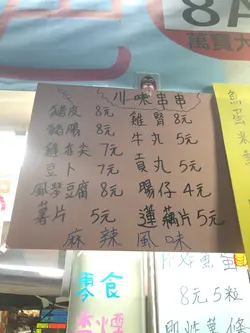 8A
萬寶
川味串串
豬皮 8元 雞腎 8元
豬腸 8元 牛丸 5元
雞雀尖 7元 貢丸 5元
豆卜 7元 腸仔 4元
風琴豆腐 8元 蓮藕片 5元
薯片 5元
麻辣風味
魚蛋
零食
炸魚蛋
8元5粒
即性